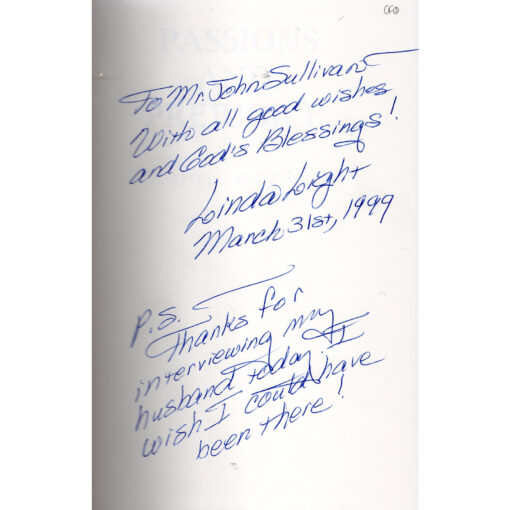 To Mr. John Sullivan
With all good wishes
and God's Blessings!
Linda Light
March 31st, 1999
P.S.
Thanks for
interviewing my
husband today. I
wish I could have
been there!
PASSIONS